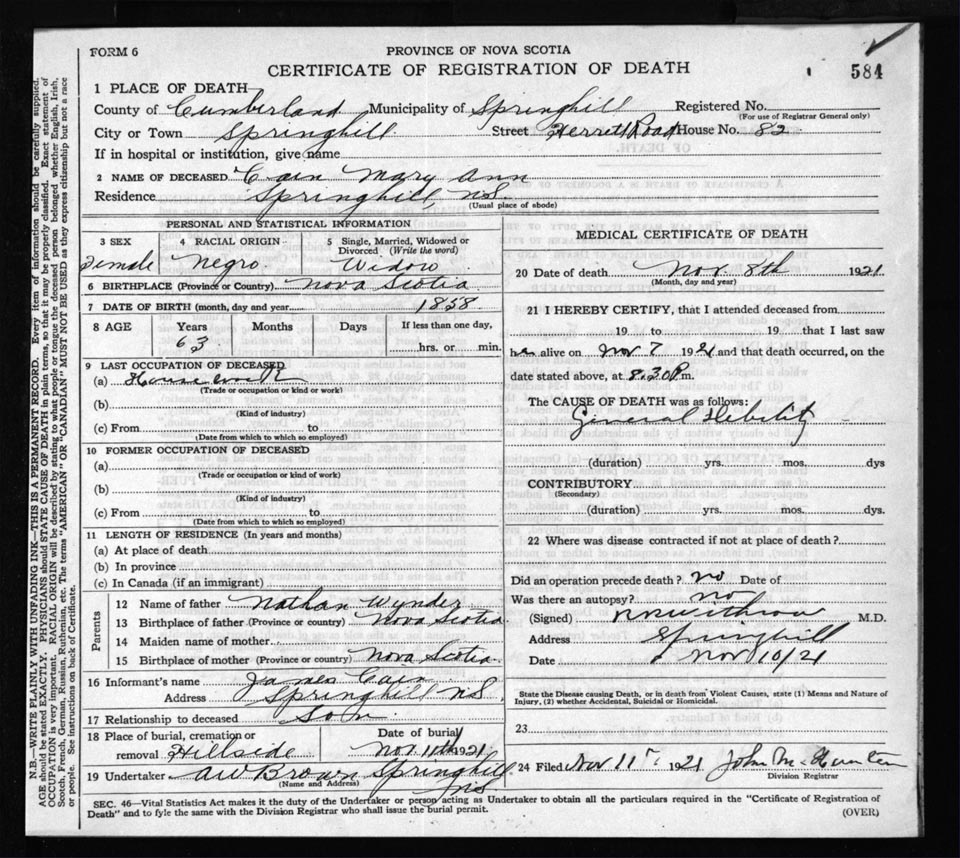 FORM 6
PROVINCE OF NOVA SCOTIA
CERTIFICATE OF REGISTRATION OF DEATH
584
1 PLACE OF DEATH
County of Cumberland Municipality of Springhill Registered No.
(For use of Registrar General only)
City or Town Springhill Street Herrett Road House No. 82
If in hospital or institution, give name
2 NAME OF DECEASED Cain Mary Ann
Residence Springhill, NS.
(Usual place of abode)
PERSONAL AND STATISTICAL INFORMATION
3 SEX
Female
4 RACIAL ORIGIN
Negro.
5 Single, Married, Widowed or
Divorced (Write the word)
Widow
6 BIRTHPLACE (Province or Country) Nova Scotia
7 DATE OF BIRTH (month, day and year) 1858
8 AGE Years Months Days If less than one day,
63
hrs. or min.
9 LAST OCCUPATION OF DECEASED
(a) House work
(Trade or occupation or kind or work)
(b)
(Kind of industry)
(c) From to
(Date from which to which so employed)
10 FORMER OCCUPATION OF DECEASED
(a)
(Trade or occupation or kind or work)
(b)
(Kind of industry)
(c) From to
(Date from which to which so employed)
11 LENGTH OF RESIDENCE (In years and months)
(a) At place of death
(b) In province
(c) In Canada (if an immigrant)
Parents
12 Name of father Nathan Wynder
13 Birthplace of father (Province or country) Nova Scotia
14 Maiden name of mother
15 Birthplace of mother (Province or country) Nova Scotia
16 Informant's name James Cain
Address Springhill NS,
17 Relationship to deceased Son
18 Place of burial, cremation or Date of burial
removal Hillside Nov 11th 1921
19 Undertaker AW Brown Springhill
(Name and Address) NS
MEDICAL CERTIFICATE OF DEATH
20 Date of death Nov. 8th 1921
(Month, day and year)
21 I HEREBY CERTIFY, that I attended deceased from
19 to 19 that I last saw
her alive on Nov 7 1921 and that death occurred, on the
date stated above, at 8.30 P.m.
The CAUSE OF DEATH was as follows:
General Debility
(duration) yrs. mos. dys
CONTRIBUTORY
(Secondary)
(duration) yrs. mos. dys.
22 Where was disease contracted if not at place of death?
Did an operation precede death? no Date of
Was there an autopsy? no
(Signed) M.D.
Address Springhill
Date Nov 10/21
State the Disease causing Death, or in death from Violent Causes, state (1) Means and Nature of
Injury, (2) whether Accidental, Suicidal or Homicidal.
23
24 Filed Nov 11th 1921 John Mc
Division Registrar
SEC. 46—Vital Statistics Act makes it the duty of the Undertaker or person acting as Undertaker to obtain all the particulars required in the "Certificate of Registration of
Death" and to fyle the same with the Division Registrar who shall issue the burial permit.
(OVER)
N.B.—WRITE PLAINLY WITH UNFADING INK—THIS IS A PERMANENT RECORD. Every item of information should be carefully supplied.
AGE should be stated EXACTLY. PHYSICIANS should STATE CAUSE OF DEATH in plain terms, so that it may be properly classified. Exact statement of
OCCUPATION is very important. RACIAL ORIGIN will be described by stating to what people or tongue the deceased person belonged whether English, Irish,
Scotch, French, German, Russian, Ruthenian, etc. The terms "AMERICAN" OR "CANADIAN" MUST NOT BE USED as they express citizenship but not a race
or people. See instructions on back of Certificate.